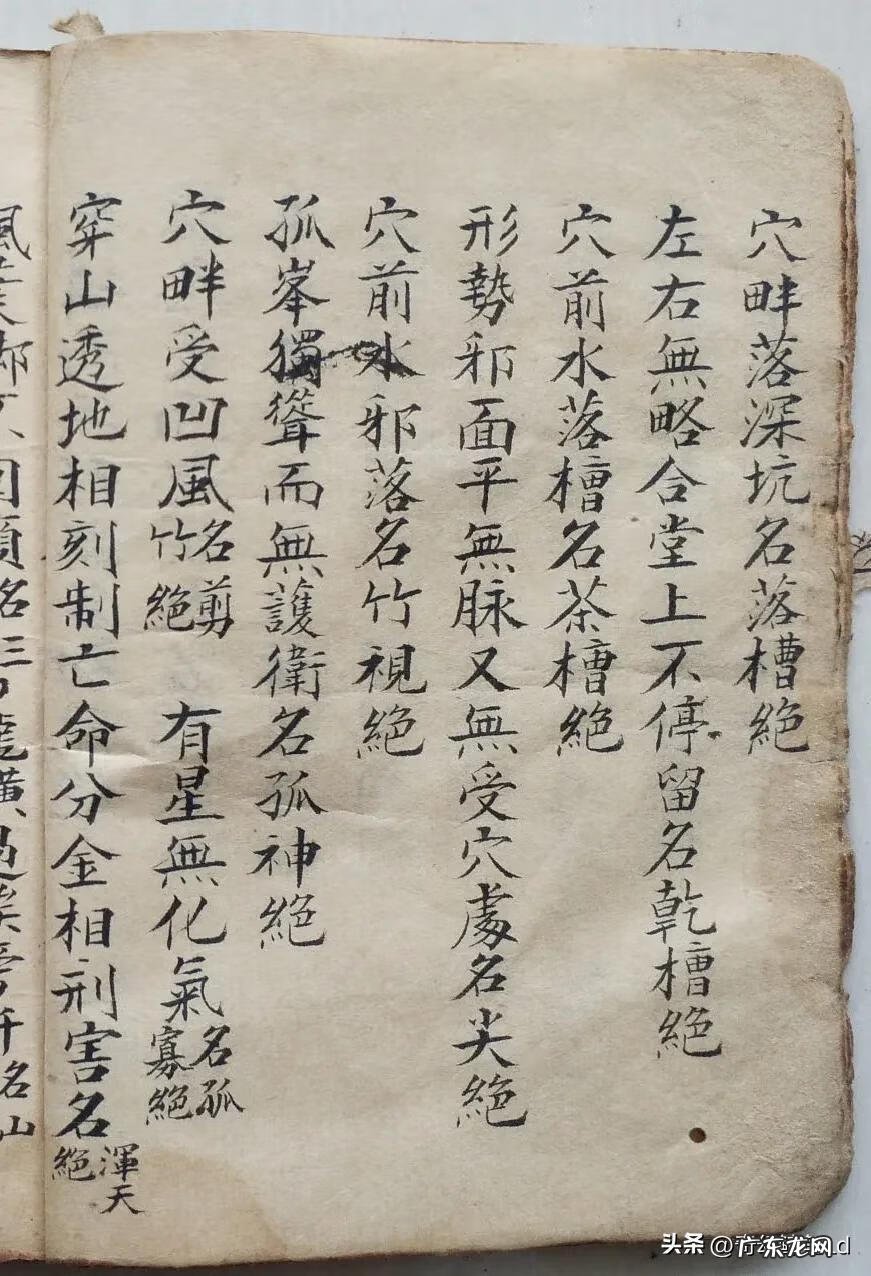 穴畔落深坑名落槽絕
左右無略合堂上不停留名乾槽絕
穴前水落槽名茶槽絕
形勢邪面平無脉又無受穴處名尖絕
穴前水邪落名竹視絕
孤峯獨聳而無護衛名孤神絕
穴畔受凹風名剪竹絕 有星無化氣名孤寡絕
穿山透地相刻制亡命分金相刑害名渾天絕
头条 @广东龙网